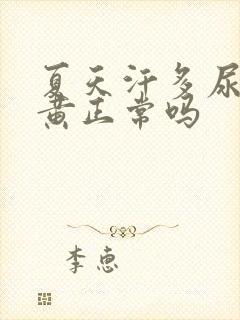 夏天汗多尿
黄正常吗
李惠